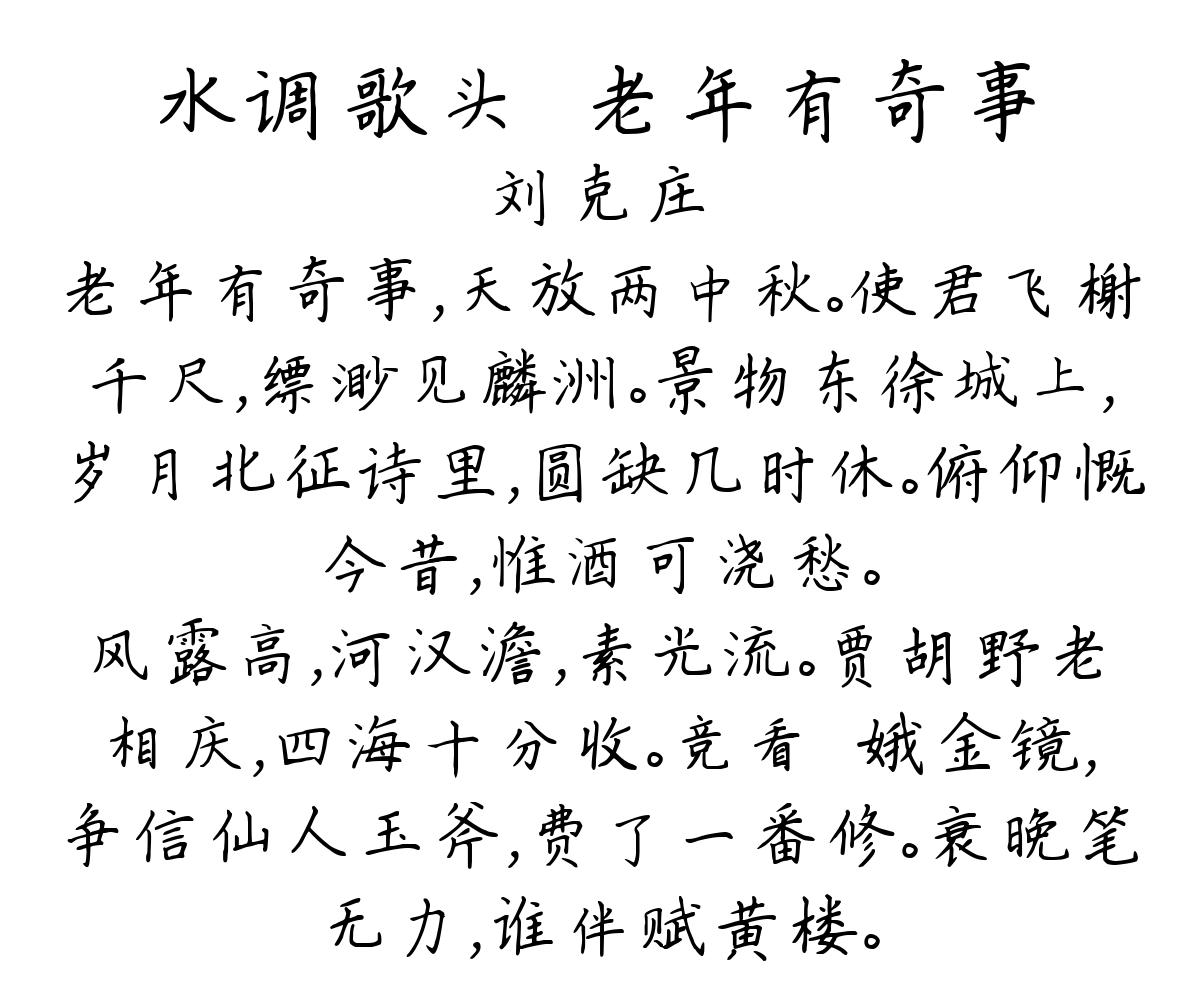 水调歌头 老年有奇事
刘克庄
老年有奇事,天放两中秋。使君飞榭
千尺,缥渺见麟洲。景物东徐城上,
岁月北征诗里,圆缺几时休。俯仰慨
今昔,惟酒可浇愁。
风露高,河汉澹,素光流。贾胡野老
相庆,四海十分收。竞看 娥金镜,
争信仙人玉斧,费了一番修。衰晚笔
无力,谁伴赋黄楼。